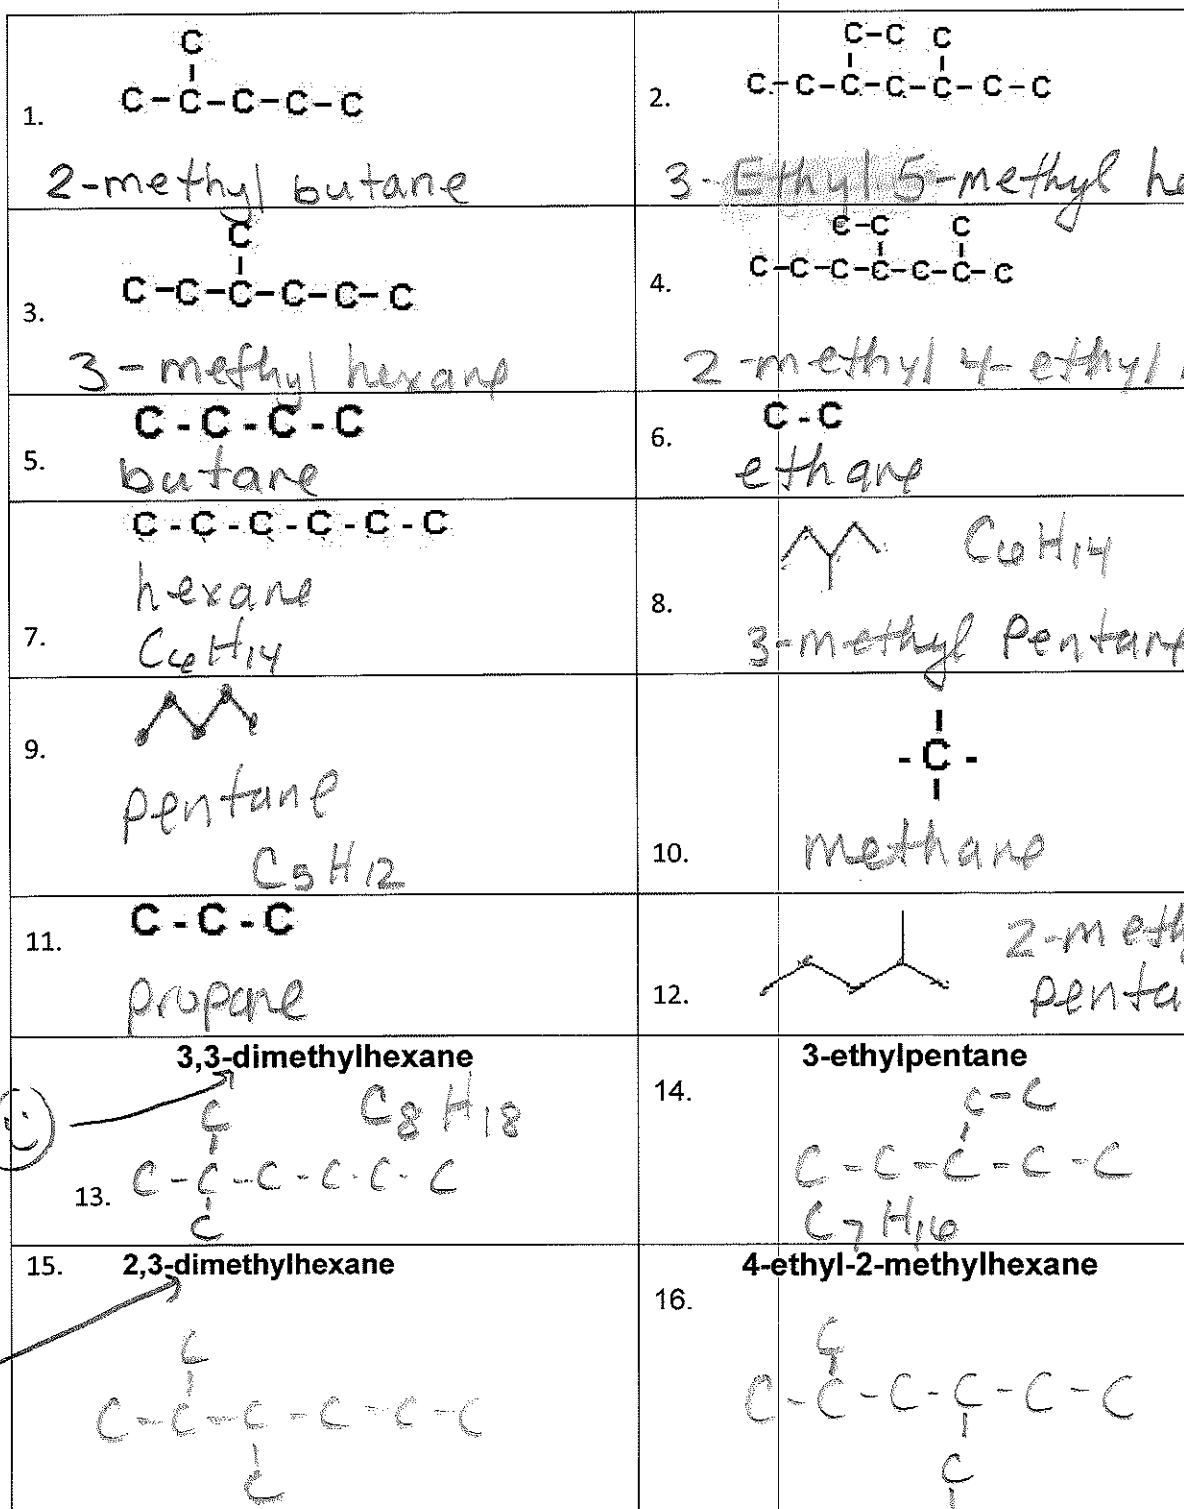 C
C-C-C-C-C
1.
2-methyl butane
C-C C
C-C-C-C-C-C-C
2.
3-Ethyl 5-methyl he
C
C-C-C-C-C-C
3.
3-methyl hexane
C-C C
C-C-C-C-C-C-C
4.
2-methyl 4-ethyl
C-C-C-C
5.
butane
C-C
6.
ethane
C-C-C-C-C-C
hexane
7.
C6H14
C6H14
8.
3-methyl Pentane
9.
pentane
C5H12
-C-
10.
methane
C-C-C
11.
propane
2-meth
12.
penta
3,3-dimethylhexane
C C8H18
C-C-C-C-C-C
13.
C
3-ethylpentane
14.
C-C
C-C-C-C-C
C7H16
15. 2,3-dimethylhexane
C
C-C-C-C-C-C
C
4-ethyl-2-methylhexane
16.
C
C-C-C-C-C-C
C